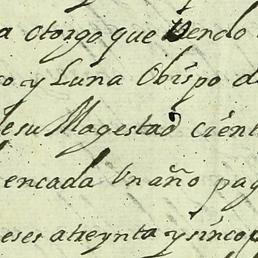 a otorgo que Vendo
co y Luna Obispo de
de su Magestad Cient
en cada Un año pag
eses atreynta y sinco p